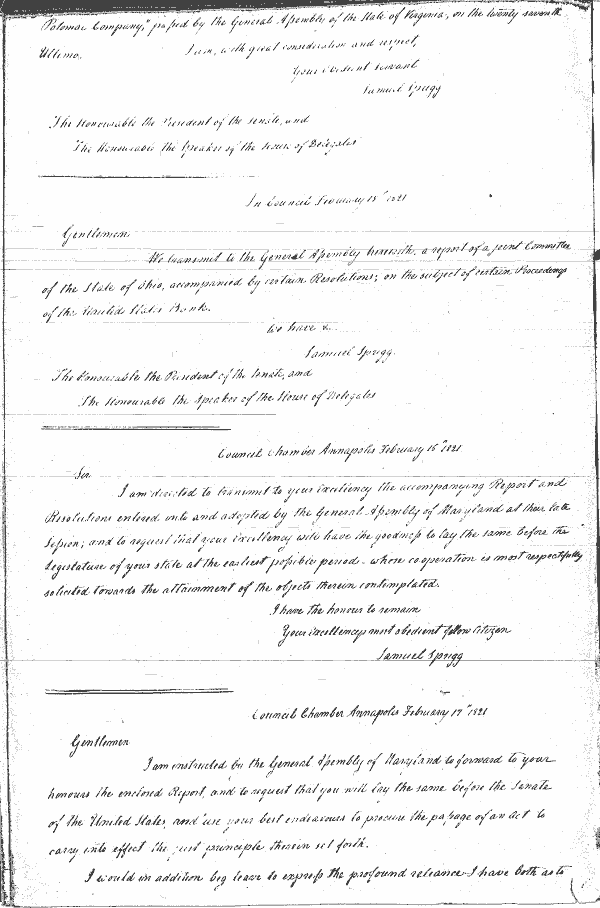 Potomac Company," passed by the General Assembly of the State of Virginia, on the twenty seventh
Ultimo.
I am, with great consideration and respect,
Your Obedient Servant
Samuel Sprigg
The Honourable the President of the Senate, and
The Honourable the Speaker of the House of Delegates
In Council February 13th 1821
Gentlemen
We transmit to the General Assembly herewith, a report of a joint Committee
of the State of Ohio, accompanied by certain Resolutions; on the subject of certain Proceedings
of the United States Bank.
We have &
Samuel Sprigg.
The Honourable the President of the Senate, and
The Honourable the Speaker of the House of Delegates
Council Chamber Annapolis February 16th 1821
Sir
I am directed to transmit to your Excellency the accompanying Report and
Resolutions entered into and adopted by the General Assembly of Maryland at their late
Session; and to request that your Excellency will have the goodness to lay the same before the
Legislature of your state at the earliest possible period - whose cooperation is most respectfully
solicited towards the attainment of the objects therein contemplated.
I have the honour to remain
Your Excellencys most obedient fellow Citizen
Samuel Sprigg
Council Chamber Annapolis February 17th 1821
Gentlemen
I am instructed by the General Assembly of Maryland to forward to your
honours the enclosed Report, and to request that you will lay the same before the Senate
of the United States, and use your best endeavours to procure the passage of an Act to
carry into effect the just principle therein set forth.
I would in addition beg leave to express the profound reliance I have both as to